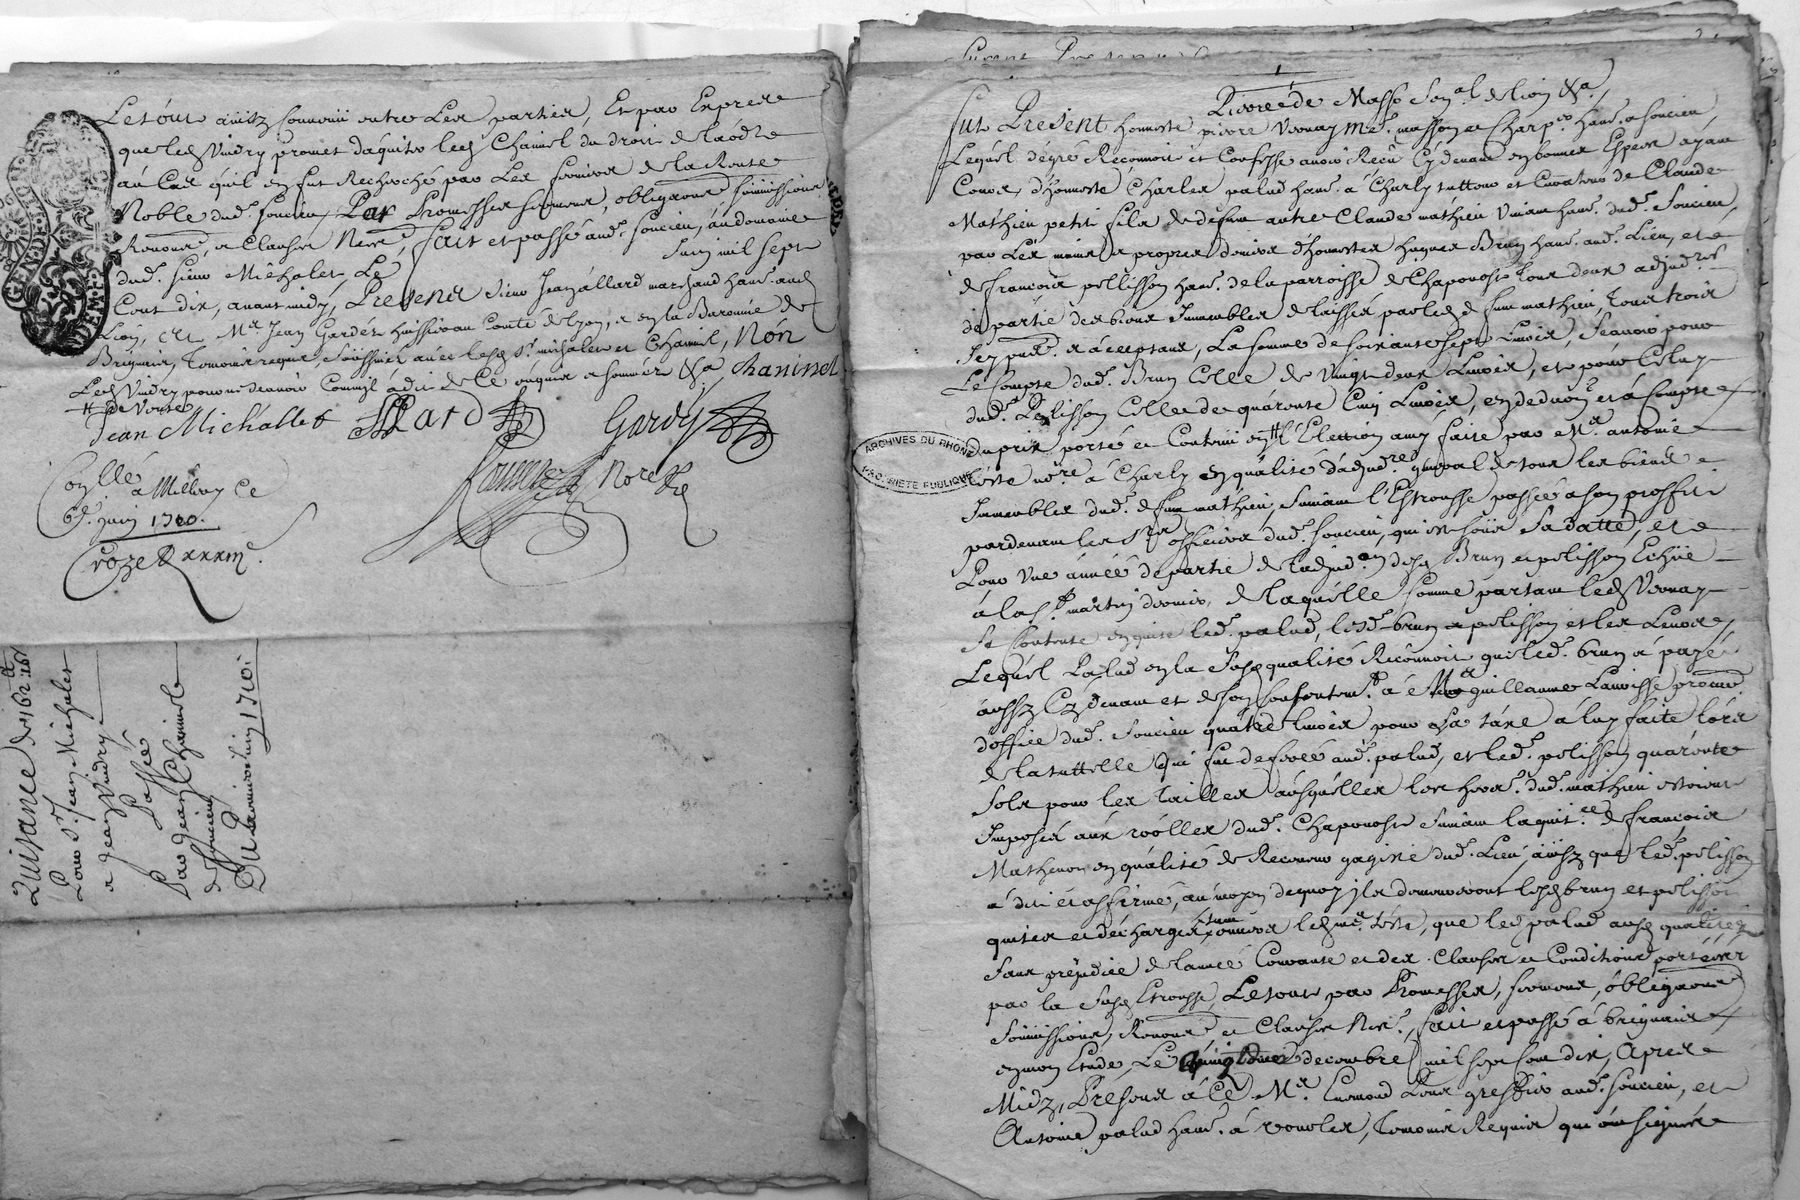 Le tout ainsy convenu entre les parties, Et par Exprés
que led. Vindry promet daquiter led. Chaninel du droit de
au Cas quil en fut Recherché par les fermiers de la Route
Noble dud. Soucieu, Par Promesses sermens, obligations, Soumissions
Renonc. et Clauses Necess. fait et passé aud. Soucieu, au domaine
dud. sieur Michalet, Le Juin mil sept
Cent dix, avant midy, Presents sieur Jean Allard marchand hant. aud.
Lion, et Me Jean Gardés huissier au Comté de Lyon, et en la Baronnie de
Brignais, temoins requis, soussignés avec lesd. sr. michalet et Chaninel, Non
Led. Vindry pour ne scavoir Comme il a dit de Ce enquis et sommé &a Chaninel
Jean Michallet Allard Gardés
Nore Rl
Collé
a Millery Ce
6e. juin 1710.
Croze R xxxiii s
Quitance de 162 tt 16 s
Pour sr. Jean Michalet
a Jean Vindry
Passée
Par Jean Chaninel
de Soucieu
Du Juin 1710.
ARCHIVES DU RHONE
PROPRIETE PUBLIQUE
Pierre de Masso Senal. de lion &a.
Fut Present honneste pierre Vernay me. masson et Charp.er hant. a Soucieu,
Lequel de gré Reconnoit et Confesse avoir Receu Cy devant en bonnes Especes ayant
Cours, d'honneste Charles palud hant. a Charly tutteur et Curateur de Claude
Mathieu petit fils de defunt autre Claude mathieu vivant hant. dud. Soucieu,
par les mains et propres deniers d'honnestes hugues Brun hant. aud. Lieu, et
de francois pellisson hant. de la parroisse de Chaponost tous deux adjud.res
de partie des biens Immeubles delaissés par led. defunt mathieu tous trois
Icy pnts. et acceptans, La somme de soixante sept Livres, scavoir pour
Le Compte dud. Brun Celle de vingt deux Livres, et pour Celuy
dud. Pelisson Celle de quarante Cinq Livres, en deduon. et a Compte
Du prix porté et Contenu en l'Election amy faite par Me. antoine
Teste no.re à Charly en qualité d'adjud.re general de tous les biens
Immeubles dud. defunt mathieu, Suivant l'Estrousse passée a son proffit
pardevant les Srs officiers dud. Soucieu, qui est sous sa datte, et
Pour Une année de partie de ladjud.on desd. Brun et pelisson Echüe
à la st. martin dernier, de laquelle somme partant led. Vernay
se Contente en quite led. palud, lesd. brun et pelisson et les Leurs,
Lequel Palud en la susd. qualité Reconnoit que led. brun a payé
aussy Cy devant et de son Consentemt. à Me guillaume Lanoisse procur.
d'office dud. Soucieu quatre livres pour sa taxe à luy faite lors
de la tuttelle qui fut deferée aud. palud, et led. pelisson quarante
sols pour les tailles ausquelles les hoirs. dud. mathieu estoient
Imposés aux rôlles dud. Chaponost Suivant la quit.ce de francois
Mathevon en qualité de Receveur dud. Lieu, ainsy que led. pelisson
a dit et affirmé, au moyen dequoy ils demeureront lesd. brun et pelisson
quites et déchargés tant envers led. me. teste, que led. palud ausd. qualités
sans préjudice de lannée Courante et des Clauses et Conditions portées
par la susd. Estrousse, Le tout par Promesses, sermens, obligations
Soumissions, Renonc. et Clauses Necess. fait et passé à brignais
en mon Etude, Le decembre mil sept cent dix, Aprés
Midy, Présens à Ce Me. greffier aud. Soucieu, et
Antoine palud hant. à vourles, Temoins Requis qui ont signé